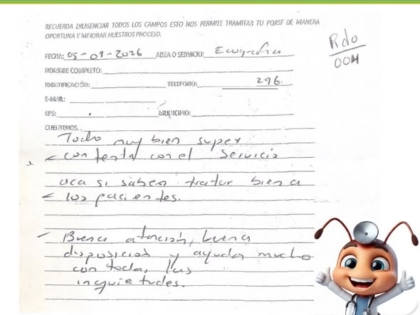 RECUERDA DILIGENCIAR TODOS LOS CAMPOS ESTO NOS PERMITE TRAMITAR TU PQRSF DE MANERA
OPORTUNA Y MEJORAR NUESTROS PROCESO.
FECHA: 05-01-2026 AREA O SERVICIO: Ecografia
Rdo
004
NOMBRE COMPLETO:
IDENTIFICACIÓN: TELEFONO: 296
E-MAIL:
EPS: MUNICIPIO:
CUENTENOS
Todo muy bien super
contenta con el servicio
aca si saben tratar bien a
los pacientes.
- Buena atención, buena
disposición y ayuda mucho
con todas las
inquietudes.